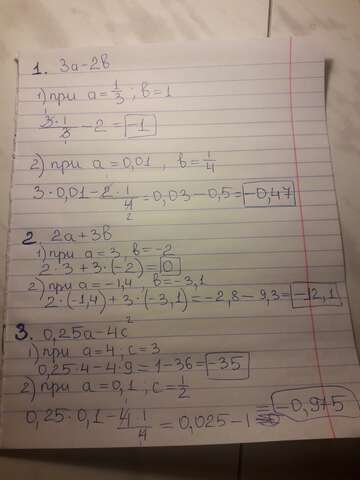 1. 3a-2b
1) при a=1/3; b=1
3·1/3 - 2 = -1
2) при a=0,01, b=1/4
3·0,01 - 2·1/4 2 = 0,03-0,5 = -0,47
2. 2a+3b
1) при a=3, b=-2
2·3+3·(-2)=0
2) при a=-1,4, b=-3,1
2·(-1,4)+3·(-3,1)=-2,8-9,3=-12,1.
3. 0,25a-4c²
1) при a=4; c=3
0,25·4-4·9=1-36=-35
2) при a=0,1; c=1/2
0,25·0,1 - 4·1/4 = 0,025-1 = -0,975